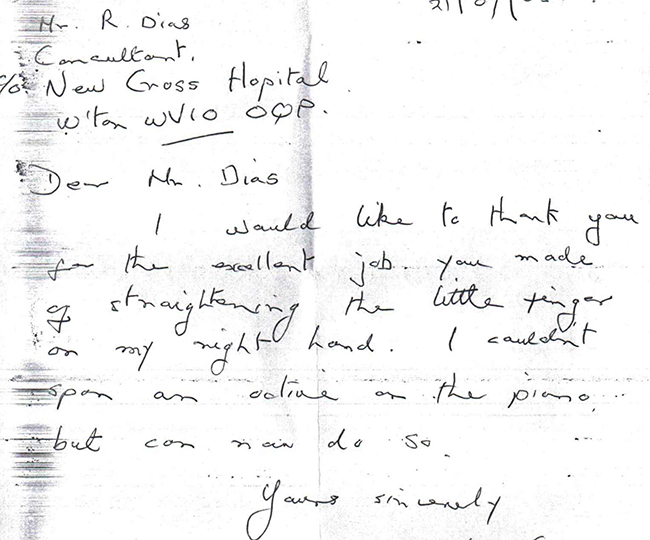 Mr. R. Dias
Consultant.
c/o New Cross Hopital
W'ton WV10 0QP.
Dear Mr. Dias
I would like to thank you
for the excellent job. you made
of straightening the little finger
on my right hand. I couldn't
span an octive on the piano.
but can now do so.
Yours sincerely